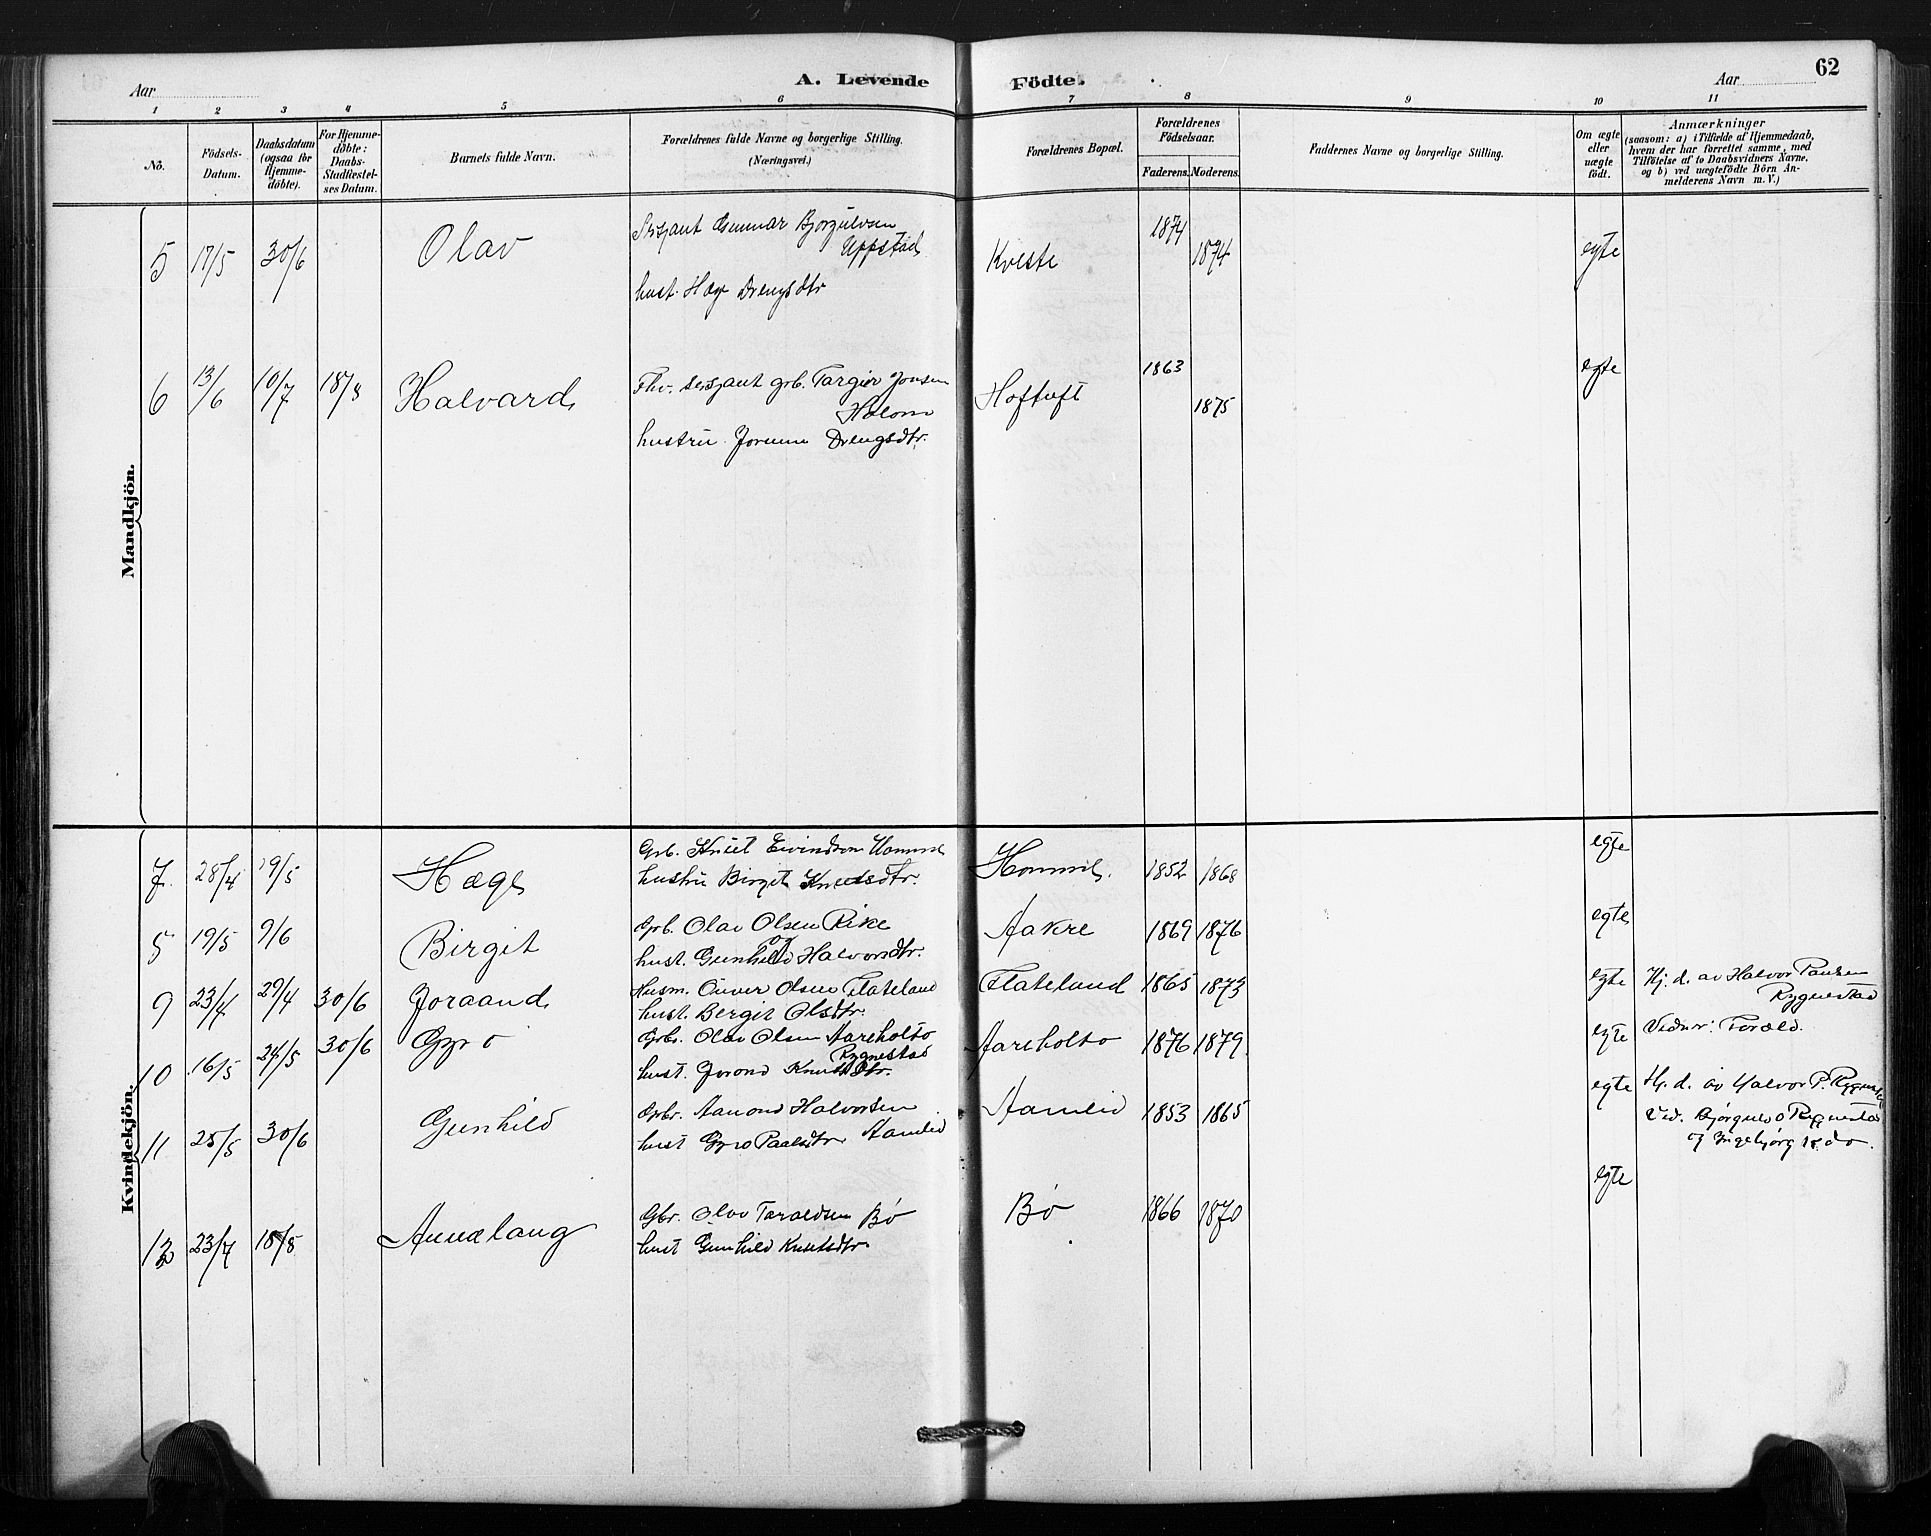 Aar
A. Levende
Födte.
Aar
62
1 2 3 4 5 6 7 8 9 10 11
No.
Födsels-
Datum.
Daabsdatum
(ogsaa for
Hjemme-
døbte).
For Hjemme-
døbte:
Daabs-
Stadfæstel-
ses Datum.
Barnets fulde Navn.
Forældrenes fulde Navne og borgerlige Stilling.
(Næringsvei.)
Forældrenes Bopæl.
Forældrenes
Födselsaar.
Faderens. Moderens.
Faddernes Navne og borgerlige Stilling.
Om ægte
eller
uægte
født.
Anmærkninger
(saasom: a) i Tilfælde af Hjemmedaab,
hvem der har forrettet samme, med
Tilföielse af to Daabsvidners Navne,
og b) ved uægtefödte Börn An-
melderens Navn m. V.)
Mandkjön.
5 17/5 30/6 Olav Sersjant Gunnar Bjørgulvsen
Uppstad
hust. Hæge Drengsdtr Kveste 1874 1874 egte
6 13/6 10/7 Halvard Fhv. sersjant grb. Targier Jonsen
Holom
hustru Jorunn Drengsdtr. Hoftuft 1863 1875 egte
Kvindekjön.
7 28/4 19/5 Hæge Grb. Knut Eivindson
hustru Birgit Knutsdtr. 1852 1868 egte
19/5 9/6 Birgit Grb. Olav Olsen Rike
hust. Gunhild Halvorsdtr. Aakre 1869 1876 egte
9 23/4 29/4 30/6 Joraand Husm. Olsen Flateland
hust. Bergit Olsdtr. Flateland 1865 1873 egte Hj. d. av Halvor Paulsen
Rygnestad
10 16/5 24/5 30/6 Gyro Grbr. Olav Olsen Aareholto
Rygnestad
hust. Jorond Knutsdtr. Aareholto 1876 1879 egte Vidner: Foræld.
11 25/5 30/6 Gunhild Gbr. Aamond Halvorsen
hust Gyro Paalsdtr Aamlid Aamlid 1853 1865 egte Hj. d. av Halvor P. Rygnestad
Vid. Bjørgulv O Rygnestad
og Ingebjørg do.
12 23/7 18/8 Annelaug Gbr. Olav Taraldsen Bø
hust Gunhild Knutsdtr. Bø 1866 1870 egte